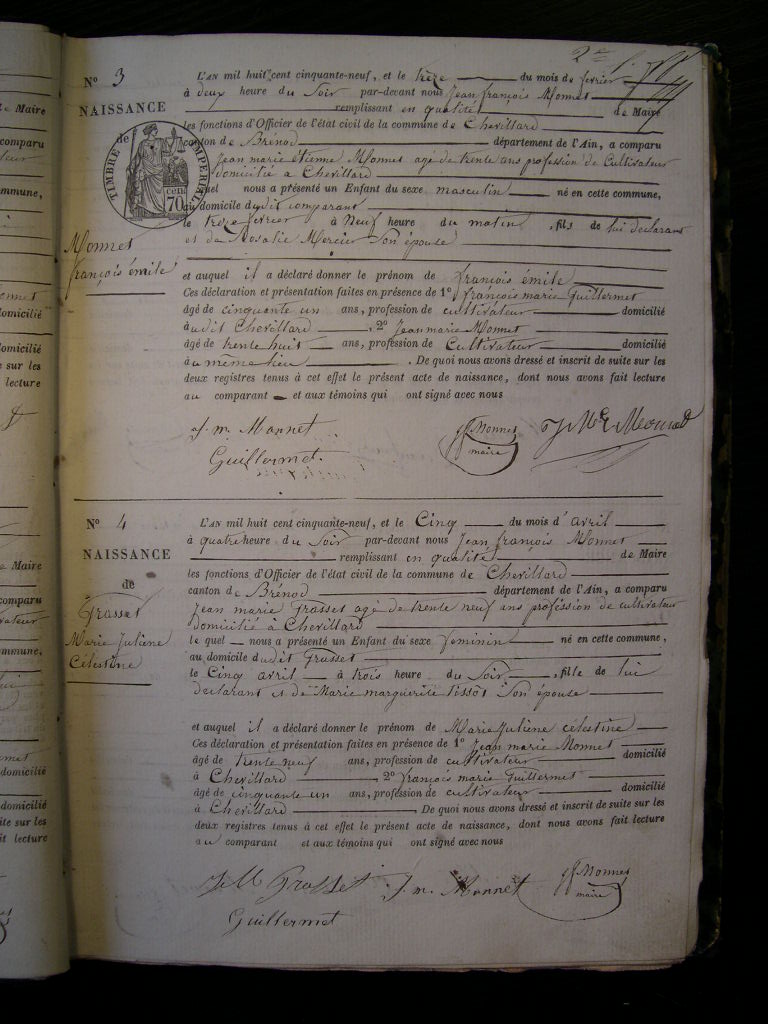 2e
N° 3
NAISSANCE
de
TIMBRE IMPERIAL
70 cen.
Monnet
françois émile
L'AN mil huit cent cinquante-neuf, et le treize du mois de fevrier
à deux heure du Soir par-devant nous Jean françois Monnet
remplissant en qualité de Maire
les fonctions d'Officier de l'état civil de la commune de Chevillard
canton de Brénod département de l'Ain, a comparu
Jean marie étienne Monnet agé de trente ans profession de Cultivateur
domicilié a Chevillard
lequel nous a présenté un Enfant du sexe masculin né en cette commune,
au domicile dudit comparant
le treize fevrier à Neuf heure du matin, fils de lui declarant
et de Rosalie Mercier Son épouse
et auquel il a déclaré donner le prénom de françois émile
Ces déclaration et présentation faites en présence de 1° françois marie Guillermet
âgé de cinquante un ans, profession de cultivateur domicilié
à udit Chevillard, 2° Jean marie Monnet
âgé de trente huit ans, profession de Cultivateur domicilié
à u même lieu. De quoi nous avons dressé et inscrit de suite sur les
deux registres tenus à cet effet le présent acte de naissance, dont nous avons fait lecture
au comparant et aux témoins qui ont signé avec nous
J. m. Monnet
Guillermet.
jf Monnet
maire
J Me Monnet
N° 4
NAISSANCE
de
Grasset
Marie Juliène
Célestine
L'AN mil huit cent cinquante-neuf, et le Cinq du mois d'avril
à quatre heure du Soir par-devant nous Jean françois Monnet
remplissant en qualité de Maire
les fonctions d'Officier de l'état civil de la commune de Chevillard
canton de Brenod département de l'Ain, a comparu
Jean marie Grasset agé de trente neuf ans profession de cultivateur
domicilié à Chevillard
le quel nous a présenté un Enfant du sexe feminin né en cette commune,
au domicile dudit Grasset
le Cinq avril à trois heure du Soir, fille de lui
declarant et de Marie marguerite tissot Son épouse
et auquel il a déclaré donner le prénom de Marie Juliène célestine
Ces déclaration et présentation faites en présence de 1° Jean marie Monnet
âgé de trente neuf ans, profession de cultivateur domicilié
à Chevillard, 2° françois marie Guillermet
âgé de cinquante un ans, profession de cultivateur domicilié
à Chevillard. De quoi nous avons dressé et inscrit de suite sur les
deux registres tenus à cet effet le présent acte de naissance, dont nous avons fait lecture
au comparant et aux témoins qui ont signé avec nous
J M Grasset
J. m. Monnet
jf Monnet
maire
Guillermet